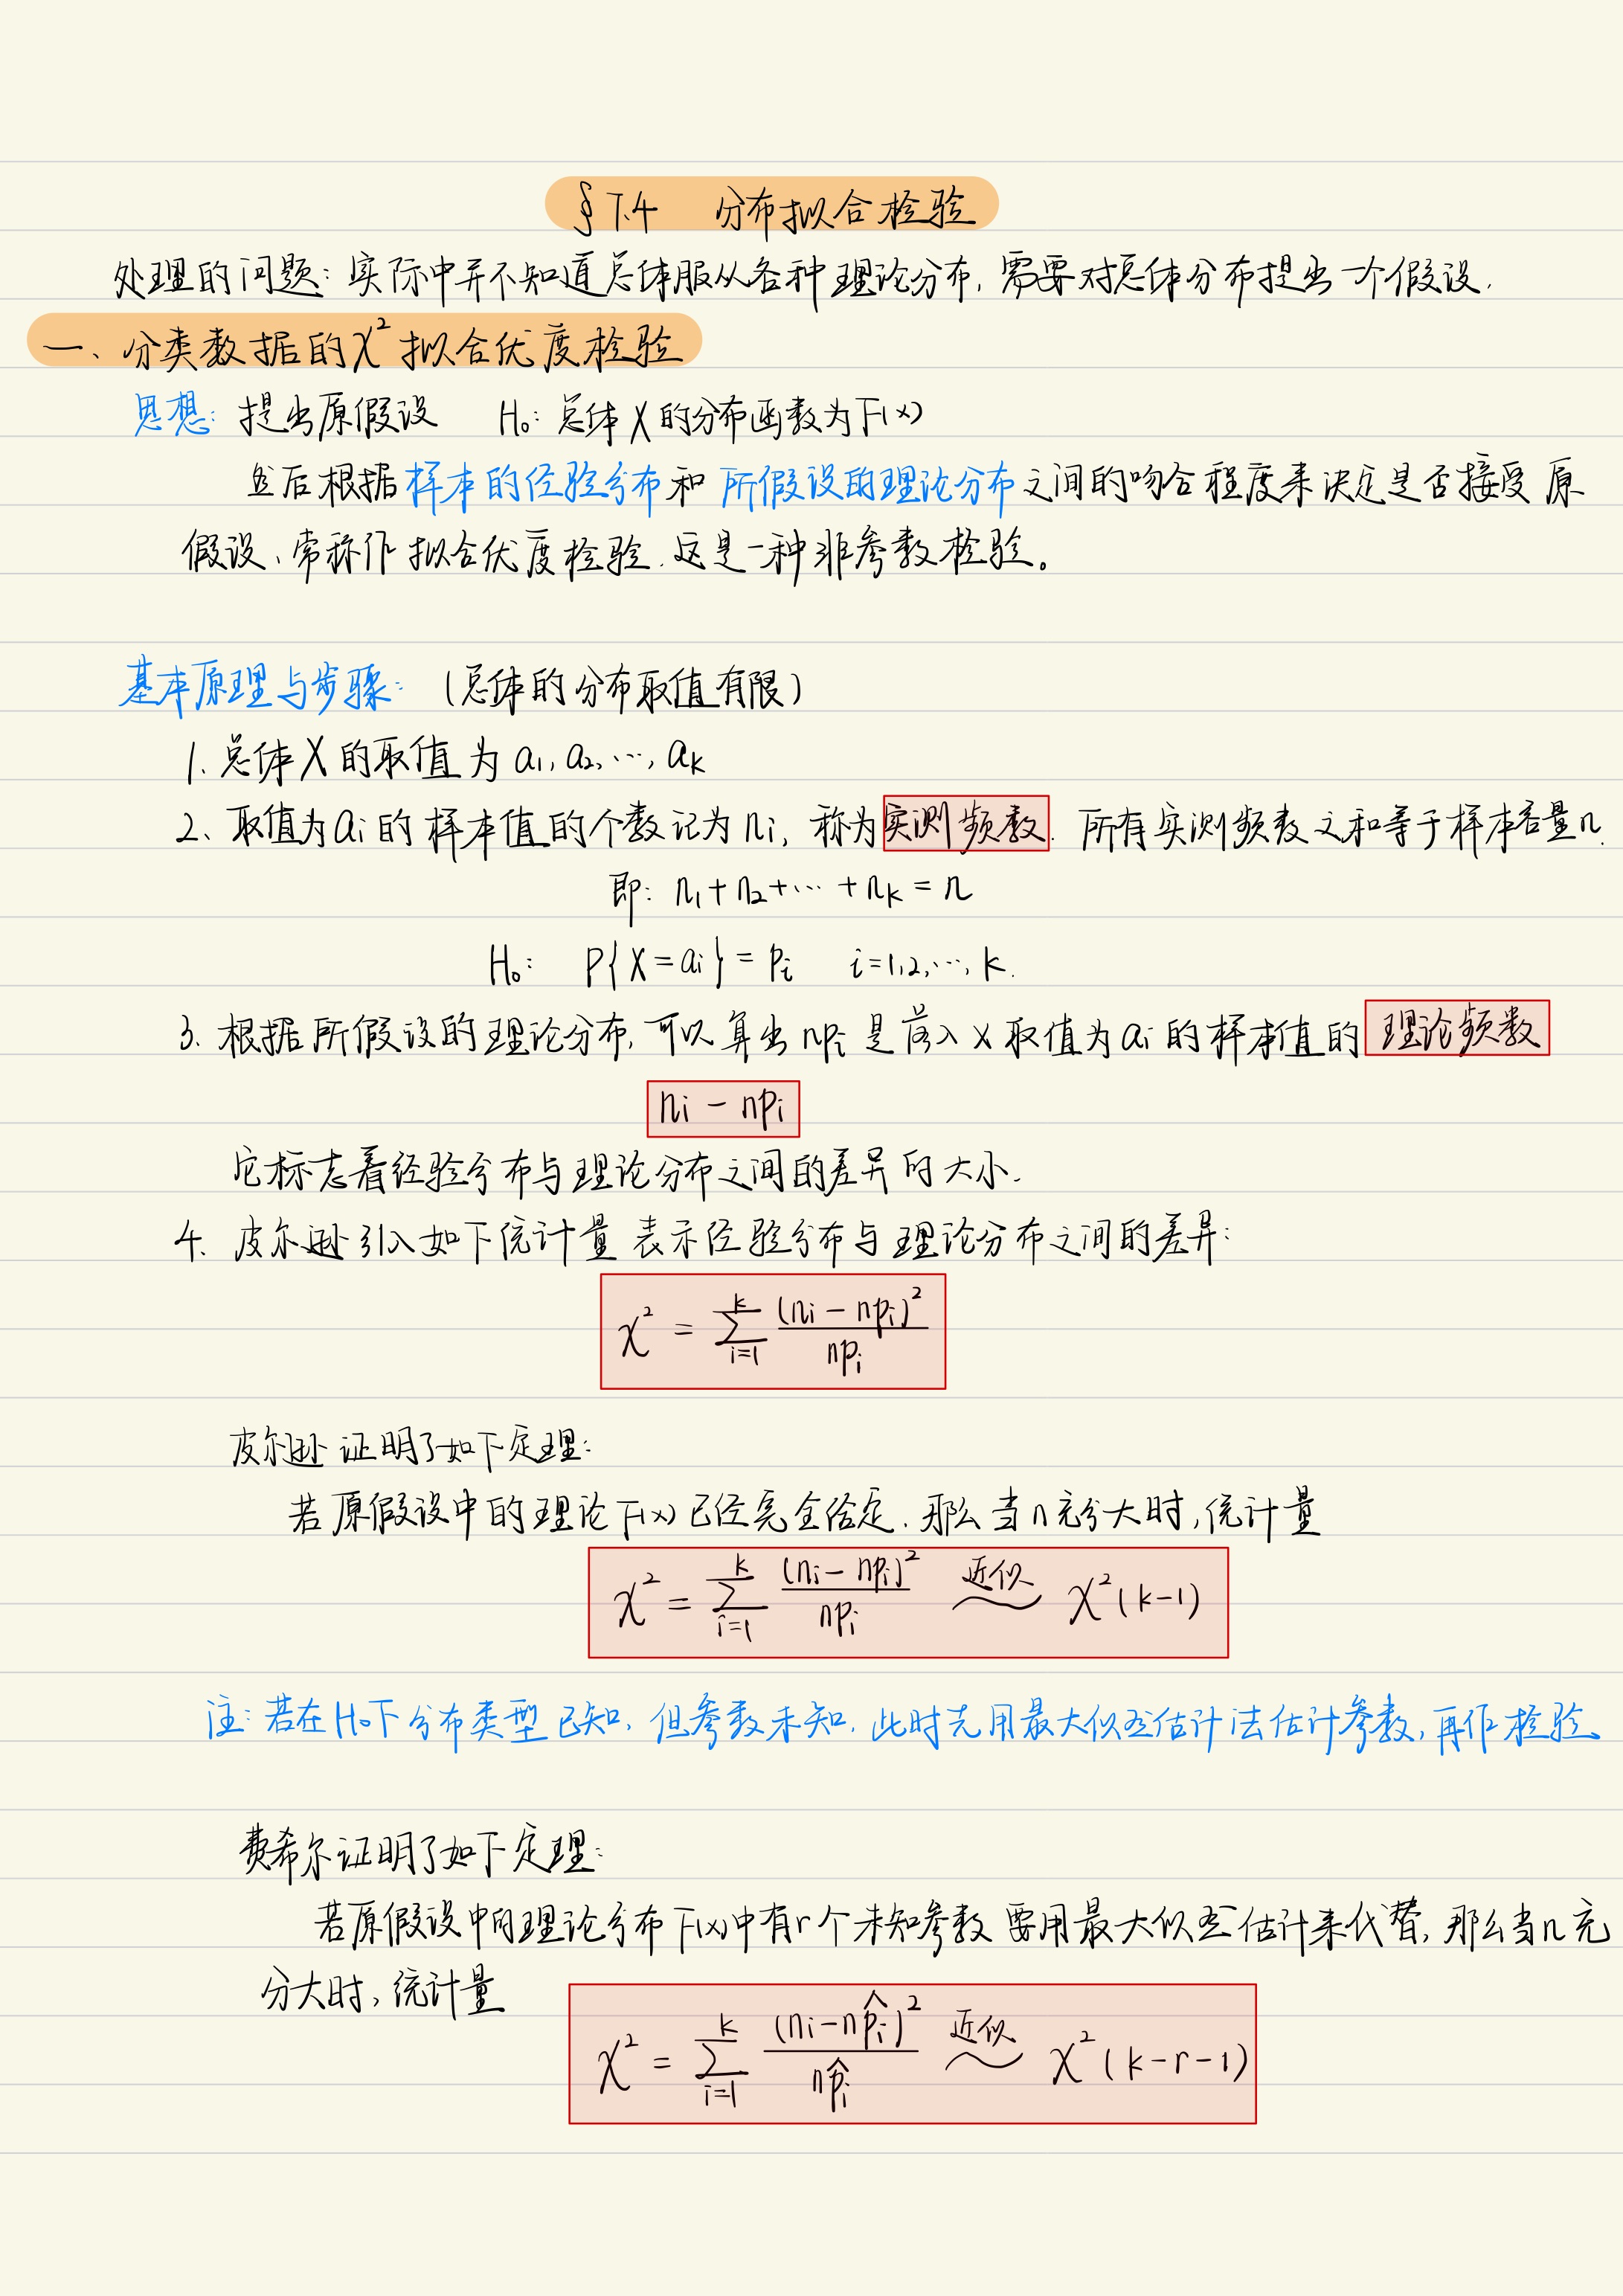 §7.4 分布拟合检验
处理的问题：实际中并不知道总体服从各种理论分布，需要对总体分布提出一个假设.
一、分类数据的χ²拟合优度检验
思想：提出原假设 H₀：总体X的分布函数为F(x)
然后根据样本的经验分布和所假设的理论分布之间的吻合程度来决定是否接受原
假设、常称作拟合优度检验.这是一种非参数检验。
基本原理与步骤：（总体的分布取值有限）
1.总体X的取值为a₁,a₂,…,aₖ
2、取值为aᵢ的样本值的个数记为nᵢ，称为实测频数.所有实测频数之和等于样本容量n.
即：n₁+n₂+…+nₖ=n
H₀： P{X=aᵢ}=pᵢ i=1,2,…,k.
3.根据所假设的理论分布,可以算出npᵢ是落入X取值为aᵢ的样本值的理论频数
nᵢ－npᵢ
它标志着经验分布与理论分布之间的差异的大小.
4.皮尔逊引入如下统计量表示经验分布与理论分布之间的差异：
χ² = ∑_{i=1}^{k} (nᵢ－npᵢ)²/npᵢ
皮尔逊证明了如下定理：
若原假设中的理论F(x)已经完全给定.那么当n充分大时,统计量
χ² = ∑_{i=1}^{k} (nᵢ－npᵢ)²/npᵢ 近似～ χ²(k-1)
注：若在H₀下分布类型已知，但参数未知.此时先用最大似然估计法估计参数,再作检验
费希尔证明了如下定理：
若原假设中的理论分布F(x)中有r个未知参数要用最大似然估计来代替,那么当n充
分大时,统计量
χ² = ∑_{i=1}^{k} (nᵢ－np̂ᵢ)²/np̂ᵢ 近似～ χ²(k-r-1)